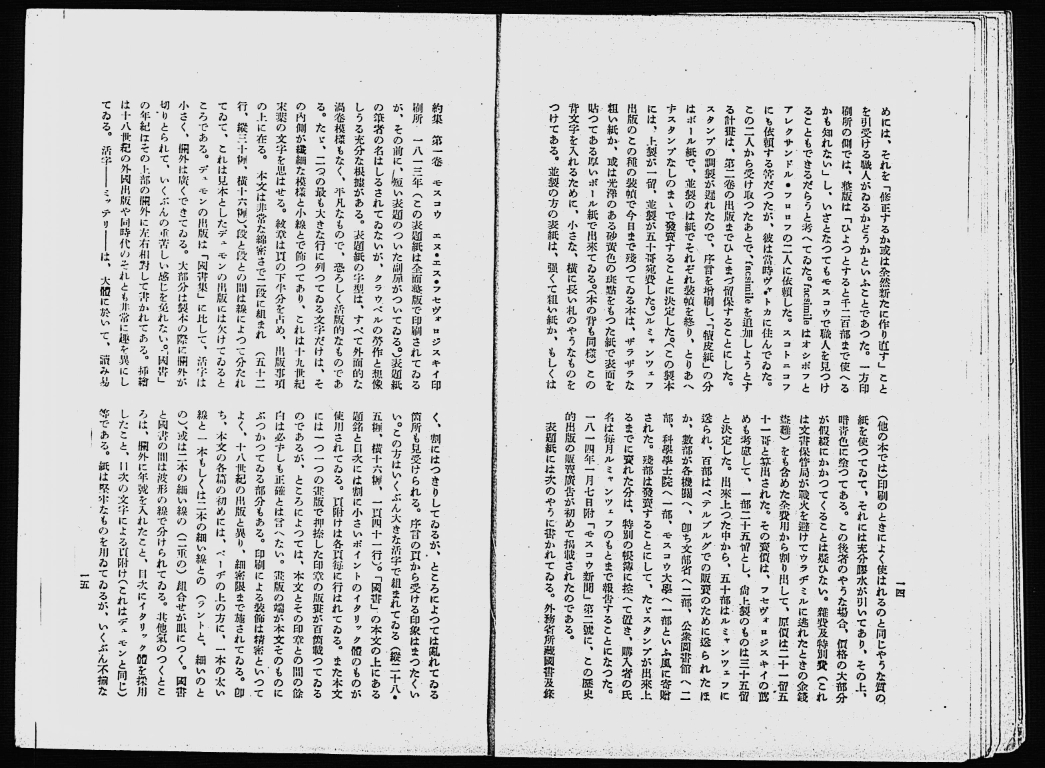 めには、それを「修正するか或は全然新たに作り直す」こと
を引受ける職人がゐるかどうかといふことであつた。一方印
刷所の側では、整版は「ひよつとすると千二百部まで使へる
かも知れない」し、いざとなつてもモスコウで職人を見つけ
ることもできるだらうと考へてゐた。facsimile はオシポフと
アレクサンドル・フロロフの二人に依頼した。スコトニコフ
にも依頼する筈だつたが、彼は當時ヴャトカに住んでゐた。
この二人から受け取つたあとで、facsimile を追加しようとす
る計畫は、第二卷の出版までひとまづ留保することにした。
スタンプの調製が遲れたので、序言を增刷し、「犢皮紙」の分
はボール紙で、並製のは紙でそれぞれ裝幀を終り、とりあへ
ずスタンプなしのまゝで發賣することに決定した。(この製本
には、上製が一留、並製が五十哥宛費した。)ルミャンツェフ
出版のこの種の裝幀で今日まで殘つてゐる本は、ザラザラな
粗い紙か、或は光澤のある砂黄色の斑點をもつた紙で表面を
貼つてある厚いボール紙で出來てゐる。(本の背も同樣)この
背文字を入れるために、小さな、橫に長い札のやうなものを
つけてある。並製の方の表紙は、強くて粗い紙か、もしくは
(他の本では)印刷のときによく使はれるのと同じやうな質の
紙を使つてゐて、それには充分膠水が引いてあり、その上、
暗靑色に塗つてある。この後者のやうた場合、價格の大部分
が假綴にかかつてくることは疑ひない。雜費及特別費(これ
は文書保管局が戰火を避けてウラヂミルに逃れたときの金錢
盜難)をも含めた全費用から割り出して、原價は二十一留五
十一哥と算出された。その賣價は、フセヴォロジスキイの寫
めも考慮して、一部二十五留とし、尙上製のものは三十五留
と決定した。出來上つた中から、五十部はルミャンツェフに
送られ、百部はペテルブルグでの販賣のために送られたほ
か、數部が各機關へ、卽ち文部省へ二部、公衆圖書館へ一
部、科學學士院へ一部、モスコウ大學へ一部といふ風に寄贈
された。殘部は發賣することにして、たゞスタンプが出來上
るまでに賣れた分は、特別の帳簿に控へて置き、購入者の氏
名は每月ルミャンツェフのもとまで報吿することになつた。
一八一四年一月七日附「モスコウ新聞」第二號に、この歷史
的出版の販賣廣吿が初めて揭載されたのである。
表題紙には次のやうに書かれてゐる。外務省所藏國書及條
一四
約集 第一卷 モスコウ エヌ・エス・フセヴォロジスキイ印
刷所 一八一三年(この表題紙は全面整版で印刷されてゐる
が、その前に、短い表題のついた副扉がついてゐる。)表題紙
の筆者の名はしるされてゐないが、クラウベルの勞作と想像
しうる充分な根據がある。表題紙の字型は、すべて外面的な
渦卷模樣もなく、平凡なもので、恐ろしく活版的なものであ
る。たゞ、二つの最も大きな行に列つてゐる文字だけは、そ
の內側が纖細な模樣と小線とで飾つてあり、これは十九世紀
末葉の文字を思はせる。紋章は頁の下半分を占め、出版事項
の上に在る。 本文は非常な綿密さで二段に組まれ (五十二
行、縱三十糎、橫十六糎)、段と段との間は線によつて分たれ
てゐて、これは見本としたデュモンの出版には欠けてゐると
ころである。デュモンの出版は「國書集」に比して、活字は
小さく、欄外は廣くできてゐる。大部分は製本の際に欄外が
切りとられて、いくぶんの重苦しい感じを免れない。「國書」
の年紀はその上部の欄外に左右相對して書かれてある。揷繪
は十八世紀の外國出版や同時代のそれとも非常に趣を異にし
てゐる。活字――ミッテリ――は、大體に於いて、讀み易
く、割にはつきりしてゐるが、ところによつては亂れてゐる
箇所も見受けられる。序言の頁から受ける印象はまつたくい
い。この方はいくぶん大きな活字で組まれてゐる (縱二十八・
五糎、橫十六糎、一頁四十一行)。「國書」の本文の上にある
題銘と目次には割に小さいポイントのイタリック體のものが
使用されてゐる。頁附けは各頁每に行はれてゐる。また本文
には一つ一つの畫版で押捺した印章の版畫が百箇載つてゐる
のであるが、ところによつては、本文とその印章との間の餘
白は必ずしも正確とは言へない。畫版の端が本文そのものに
ぶつかつてゐる部分もある。印刷による裝飾は精密といつて
よく、十八世紀の出版と異り、細密限まで施されてゐる。卽
ち、本文の各篇の初めには、ページの上の方に、一本の太い
線と一本もしくは二本の細い線との (ラントと、細いのと
の)、或は二本の細い線の (二重の) 組合せが眼につく。國書
と國書の間は波形の線で分けられてゐる。其他氣のつくとこ
ろは、欄外に年號を入れたこと、目次にイタリック體を採用
したこと、目次の文字による頁附け(これはデュモンと同じ)
等である。紙は堅牢なものを用ゐてゐるが、いくぶん不揃な
一五